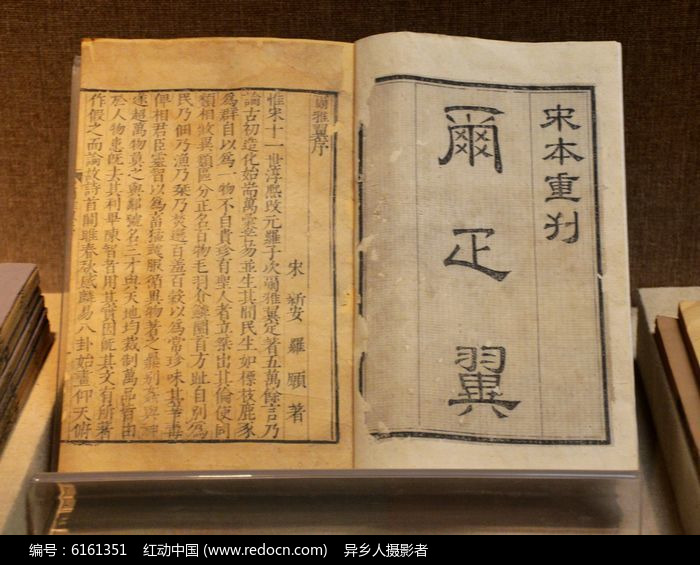 宋本重刋
爾疋翼
爾雅翼序
宋 新安 羅願 著
惟宋十一世淳熙改元羅子次爾雅翼定著五萬餘言乃
論古初造化始尚萬彙並生其間民生如標枝鹿豕
爲群自以爲一物不自貴珍有聖人者立桀出其倫使同
類相收異類區分正名百物毛羽介鱗圜首方趾自别爲
民乃佃乃漁乃桒乃選百蔬百穀以爲常珍味其華毒
俾相君臣靈習以爲畜猛鷙服循異物著之彝别姦與神
遂超萬物莫之與鄰號名三才與天地均裁制萬品皆由
於人物患既去其利畢陳智者用其實因既其文有所著
作假之而論故詩首關雎春秋感麟易八卦始畫仰天俯
编号：6161351 红动中国 (www.redocn.com) 异乡人摄影者